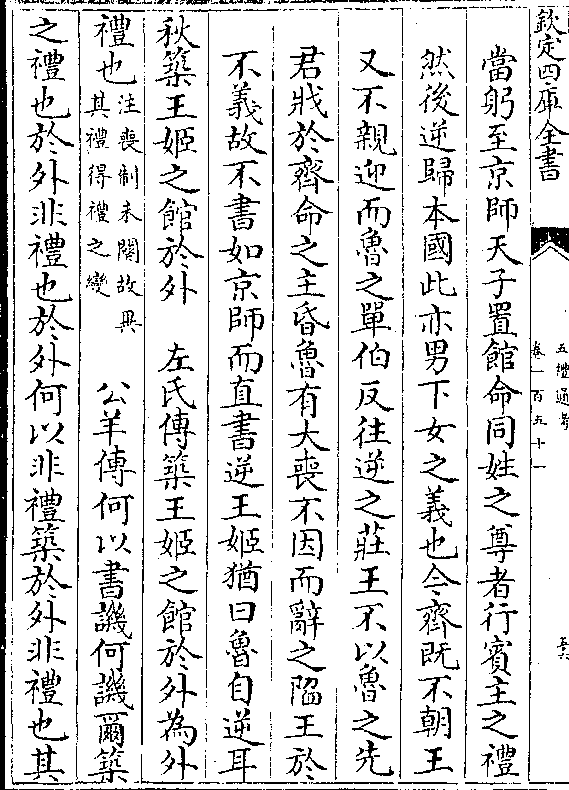 欽定四庫全書
五禮通考
卷一百五十一
當躬至京師天子置館命同姓之尊者行賓主之禮
然後逆歸本國此亦男下女之義也今齊既不朝王
又不親迎而魯之單伯反往逆之莊王不以魯之先
君戕於齊命之主昏魯有大喪不因而辭之陷王於
不義故不書如京師而直書逆王姬猶曰魯自逆耳
秋築王姬之館於外　左氏傳築王姬之館於外為外
禮也注喪制未闋故異其禮得禮之變　公羊傳何以書譏何譏爾築
之禮也於外非禮也於外何以非禮築於外非禮也其